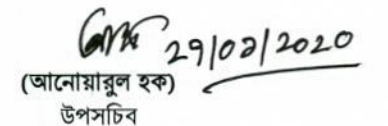 29/02/2020
(আনোয়ারুল হক)
উপসচিব